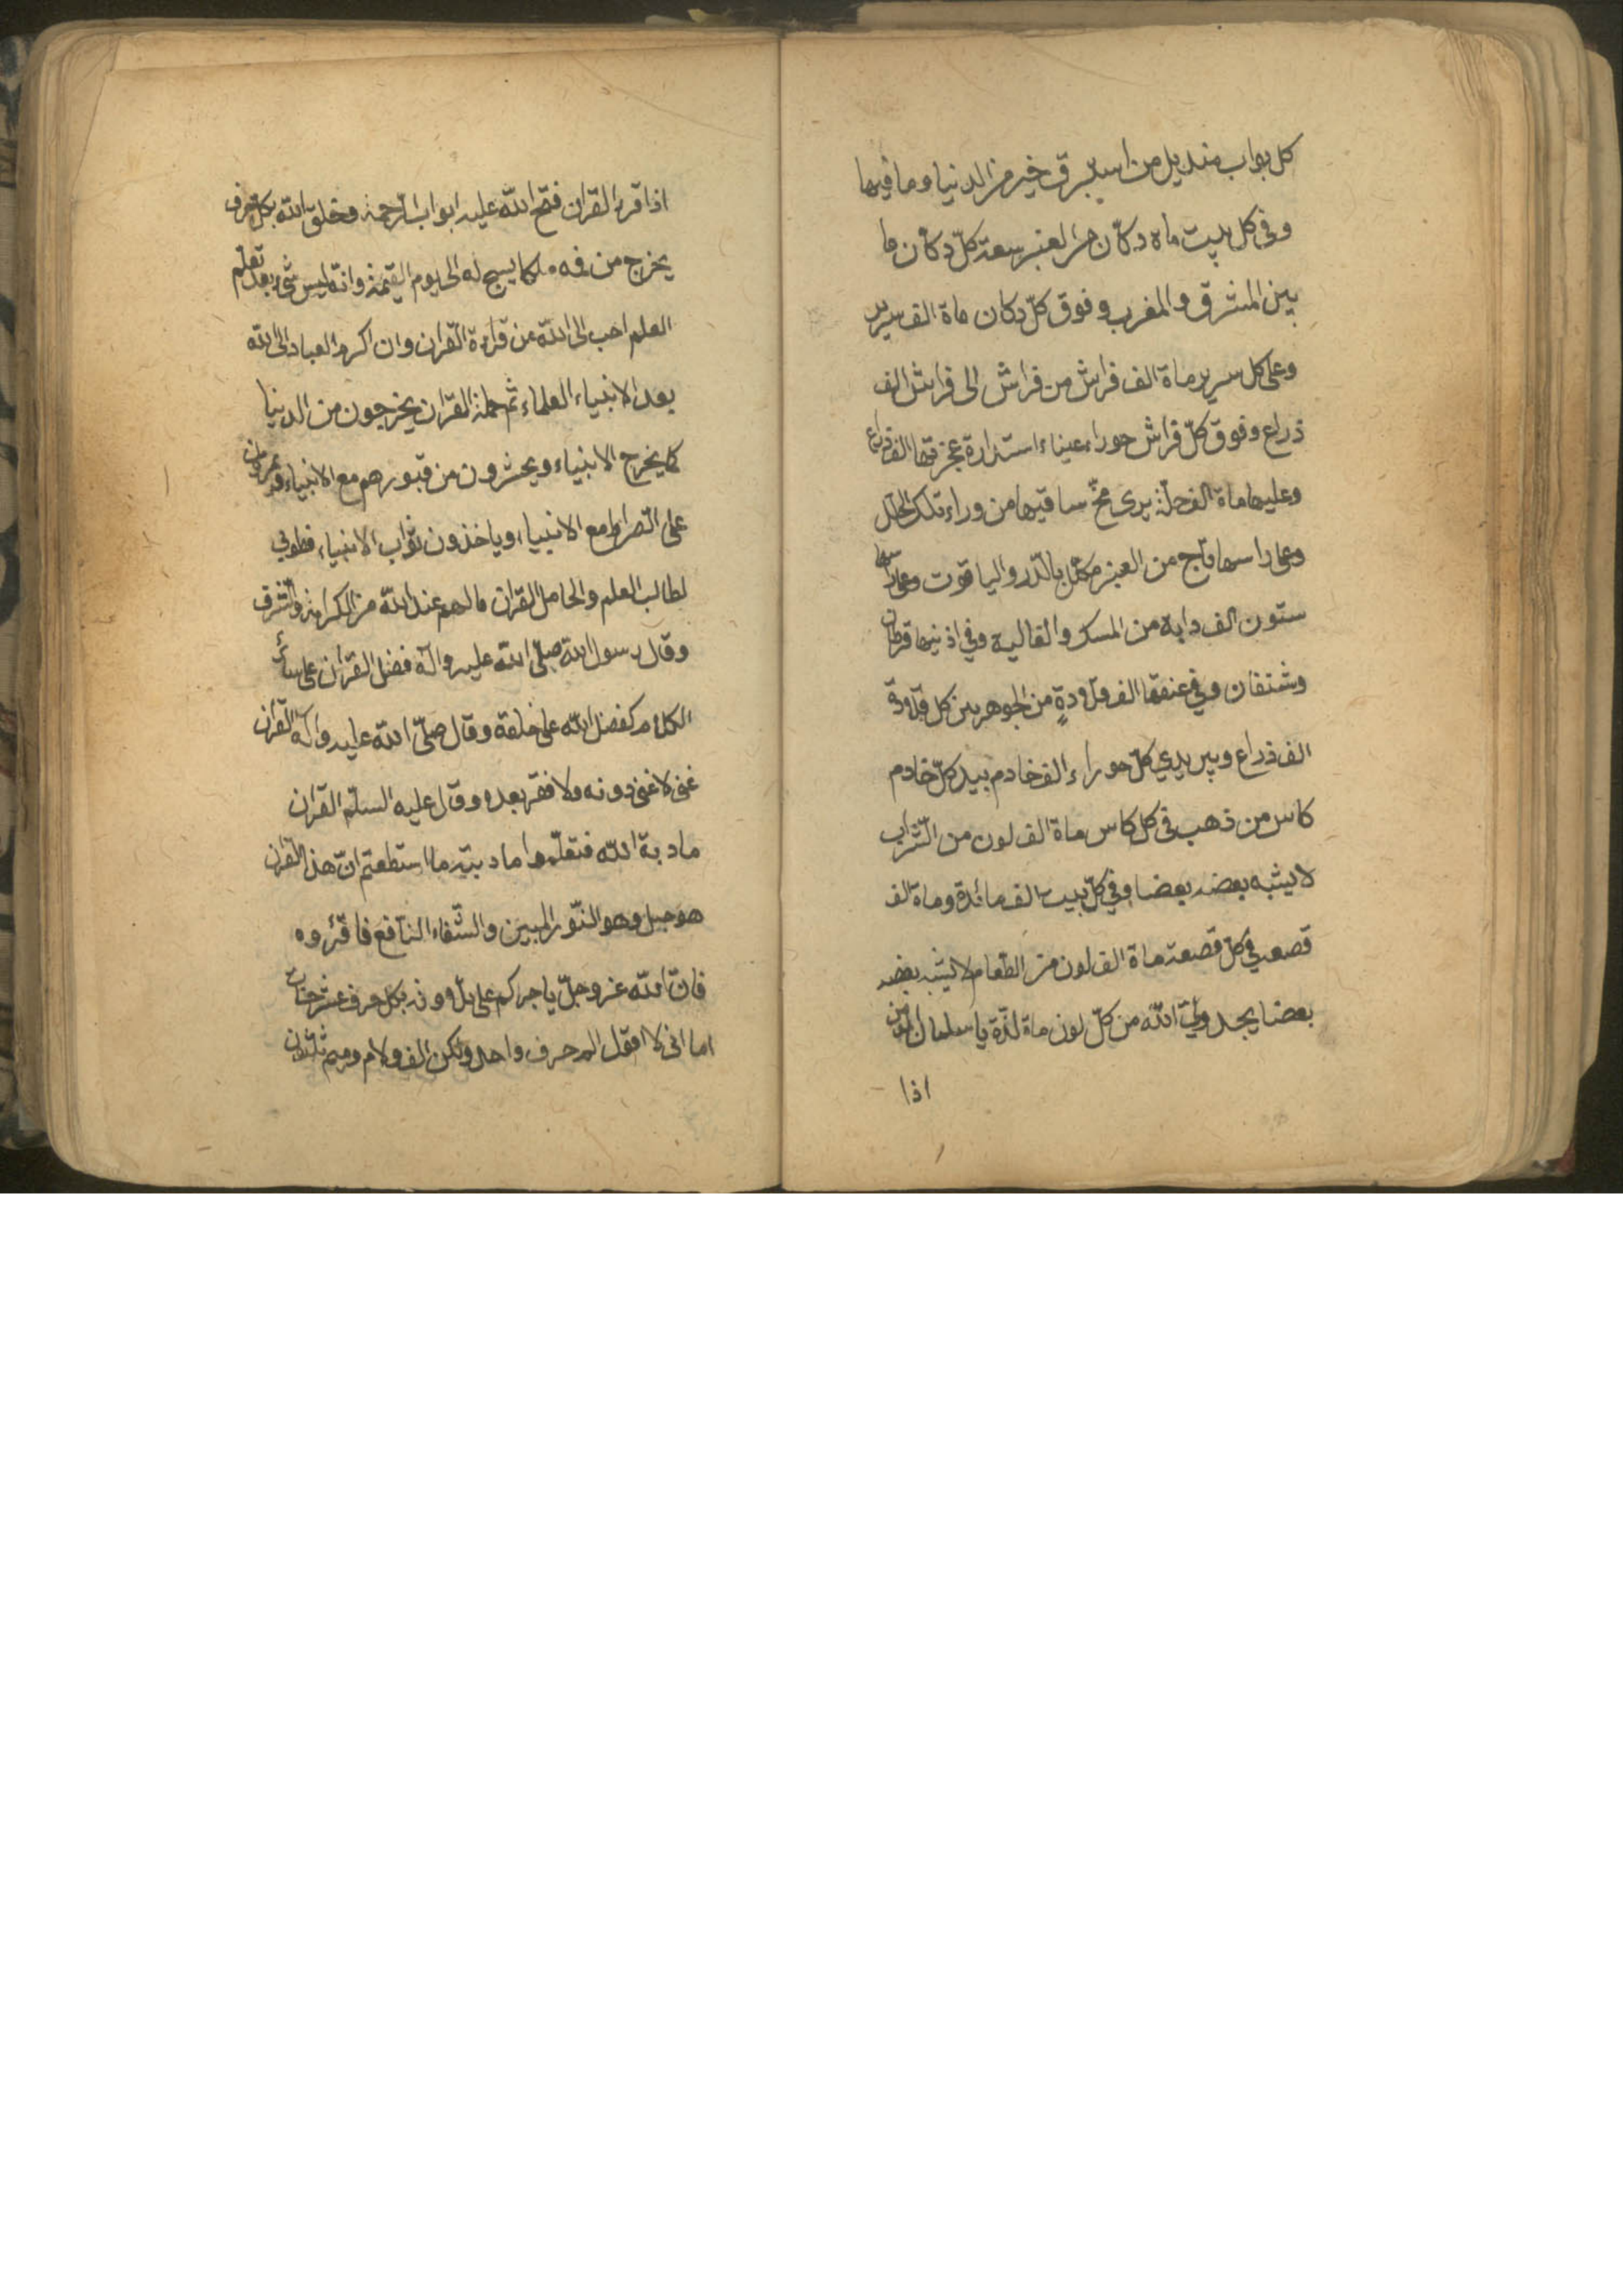 كل بواب منديل من استبرق خير من الدنيا وما فيها
وفي كل بيت ماة دكان من العنبر سعة كلّ دكان ما
بين المشرق والمغرب وفوق كلّ دكان ماة الف سرير
وعلى كل سرير ماة الف فراش من فراش الى فراش الف
ذراع وفوق كلّ فراش حوراء عيناء استدارة عجزتها الف ذراع
وعليها ماة الف حلة يرى مخّ ساقيها من وراء تلك الحلل
وعلى راسها تاج من العنبر مكلّل بالدّر والياقوت وعلى راسها
ستون الف دابة من المسك والغالية وفي اذنيها قرطان
وشنفان وفي عنقها الف قلاودةٍ من الجوهر بين كل قلاودة
الف ذراع وبين يدي كلّ حوراء الف خادم بيد كلّ خادم
كاس من ذهب في كل كاس ماة الف لون من الشّراب
لا يشبه بعضه بعضا وفي كلّ بيت الف مائدة وماة الف
قصعة في كلّ قصعة ماة الف لون من الطّعام لا يشبه بعضه
بعضا يجد وليّ اللّه من كلّ لون ماة لذّة يا سلمان المؤمن
اذا
اذا قرء القران فتح اللّه عليه ابواب الرّحمة وخلق اللّه بكل حرف
يخرج من فمه ملكا يسبح له الى يوم القيمة وانّه ليس شئ بعد تعلم
العلم احب الى اللّه من قراءة القران وان اكرم العباد الى اللّه
بعد الانبياء العلماء ثم حملة القران يخرجون من الدنيا
كما يخرج الانبياء ويحشرون من قبورهم مع الانبياء ويمرون
على الصّراط مع الانبياء وياخذون ثواب الانبياء فطوبى
لطالب العلم والحامل القران مالهم عند اللّه من الكرامة والشّرف
وقال رسول اللّه صلّى اللّه عليه وآله فضل القرآن على سائر
الكلام كفضل اللّه على خلقه وقال صلّى اللّه عليه وآله القران
غنى لا غنى دونه ولا فقر بعده وقال عليه السلم القران
مادبة اللّه فتعلّموا مادبته ما استطعتم انّ هذا القران
هو حبل وهو النّور المبين والشّفاء النّافع فاقرؤه
فانّ اللّه عز وجلّ ياجركم على تلاووته بكل حرف عشر حسنات
اما انى لا اقول الم حرف واحد ولكن الف ولام وميم ثلثون